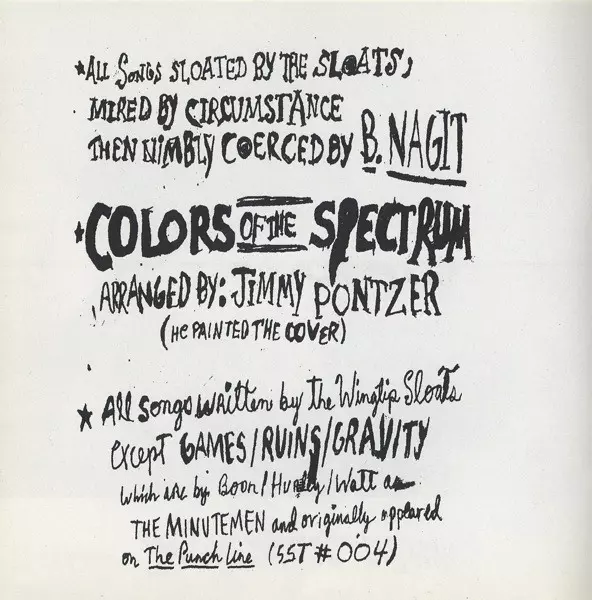 ★ALL SONGS SLOATED BY THE SLOATS,
MIRED BY CIRCUMSTANCE
THEN NIMBLY COERCED BY B. NAGIT
★COLORS OF THE SPECTRUM
ARRANGED BY: JIMMY PONTZER
(HE PAINTED THE COVER)
★ All songs written by the Wingtip Sloats
except GAMES/RUINS/GRAVITY
which are by Boon/Hurley/Watt as
THE MINUTEMEN and originally appeared
on The Punch Line (SST # 004)